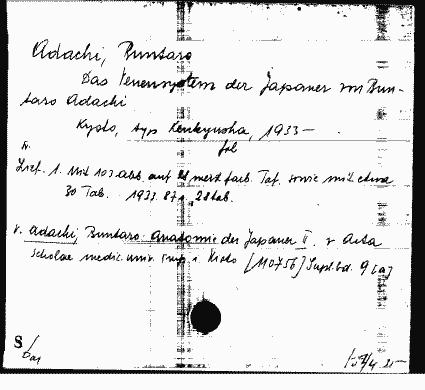 Adachi, Buntaro
Das Venensystem der Japaner von Bun-
taro Adachi
Kyoto, typ Kenkyusha, 1933 —
fol
Lief. 1. Mit 103 abb. auf meist farb. Taf. sowie mit etwa
30 Tab. 1933. 87 s., 28 tab.
v. Adachi, Buntaro: Anatomie der Japaner II. v Acta
scholae medic. univ. imp. i. Kioto [110756] Supl. bd. 9 [a]
S